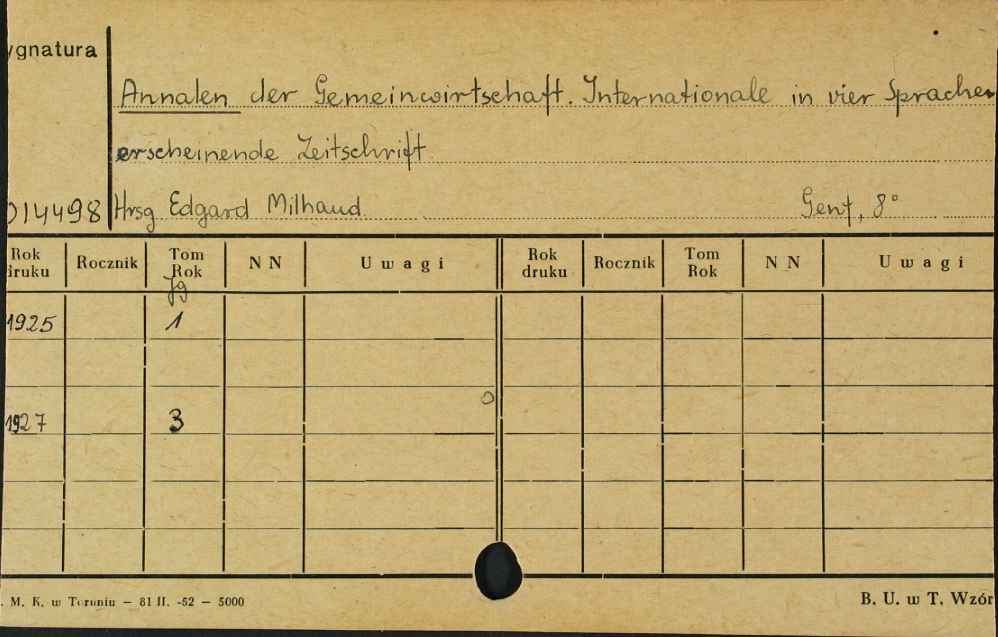 ygnatura
Annalen der Gemeinwirtschaft. Internationale in vier Sprachen
erscheinende Zeitschrift
014498 Hrsg Edgard Milhaud Genf, 8°
Rok druku Rocznik Tom Rok NN Uwagi Rok druku Rocznik Tom Rok NN Uwagi
Jg
1925 1
1927 3
. M. K. w Toruniu — 81 II. -52 — 5000 B. U. w T. Wzór